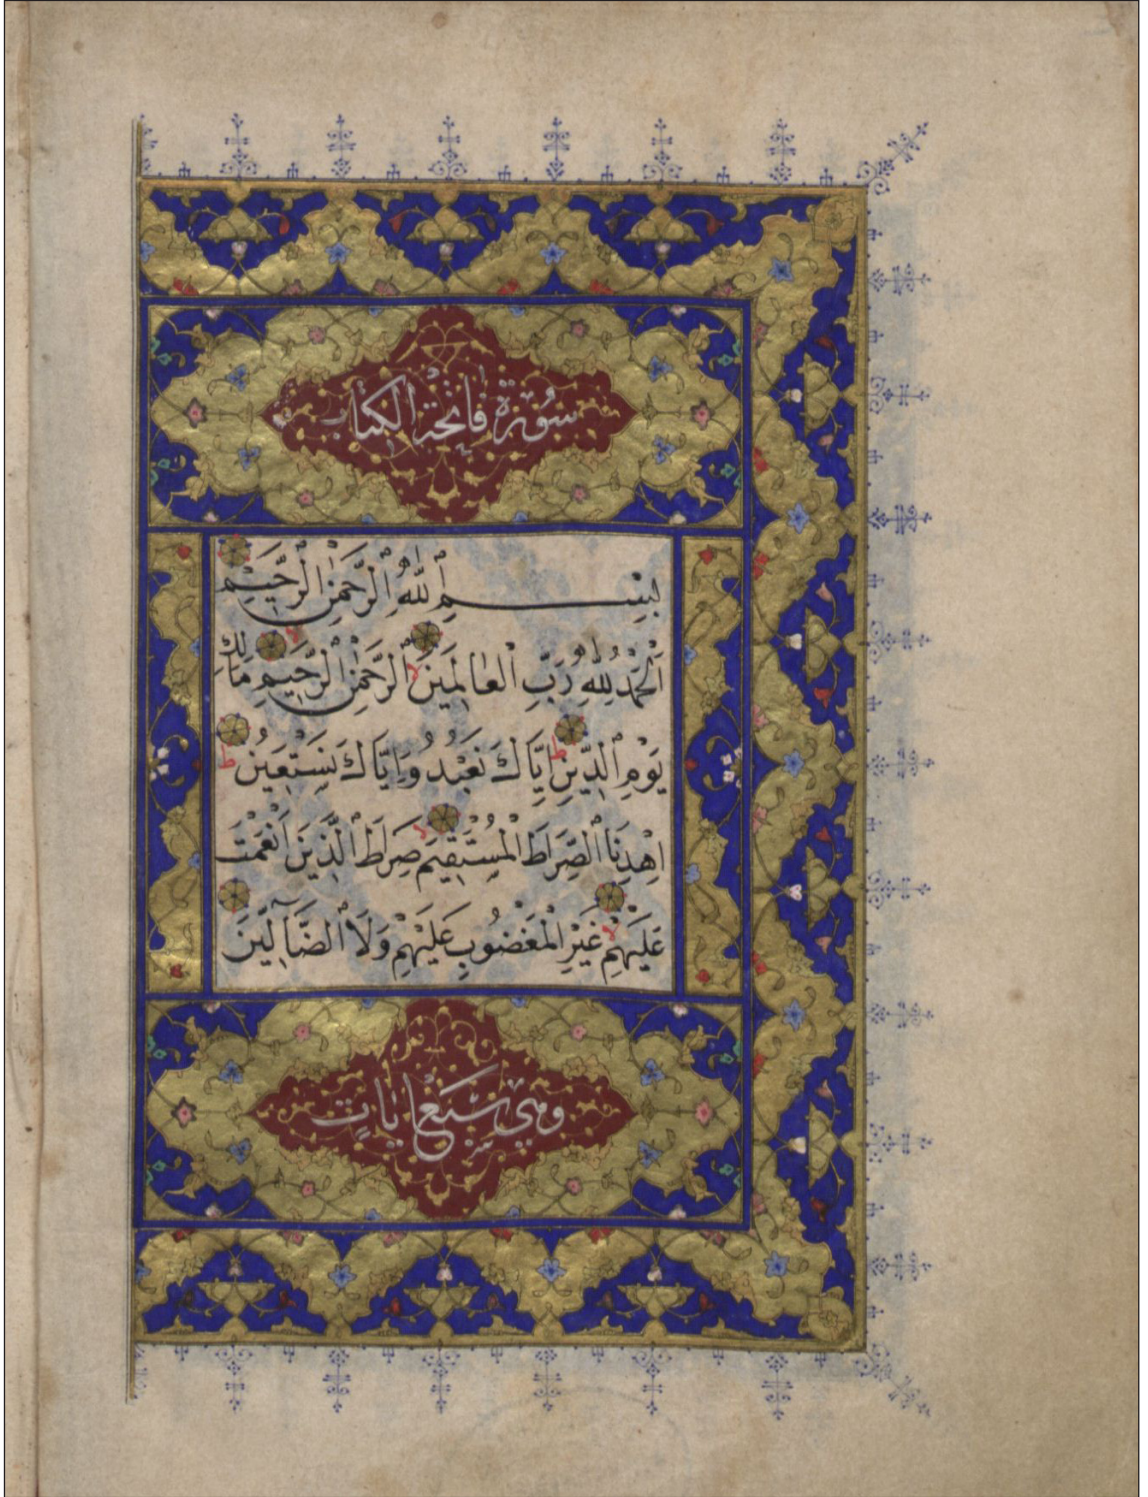 سُورَةُ فَاتِحَةِ الْكِتَابِ
بِسْمِ ٱللَّهِ ٱلرَّحْمَٰنِ ٱلرَّحِيمِ
اَلْحَمْدُ لِلَّهِ رَبِّ ٱلْعَالَمِينَ لا ٱلرَّحْمَٰنِ ٱلرَّحِيمِ مَالِكِ
يَوْمِ ٱلدِّينِ ط إِيَّاكَ نَعْبُدُ وَإِيَّاكَ نَسْتَعِينُ ط
اِهْدِنَا ٱلصِّرَاطَ ٱلْمُسْتَقِيمَ لا صِرَاطَ ٱلَّذِينَ اَنْعَمْتَ
عَلَيْهِمْ لا غَيْرِ ٱلْمَغْضُوبِ عَلَيْهِمْ وَلَا ٱلضَّآلِّينَ
وَهِيَ سَبْعُ اٰيَاتٍ